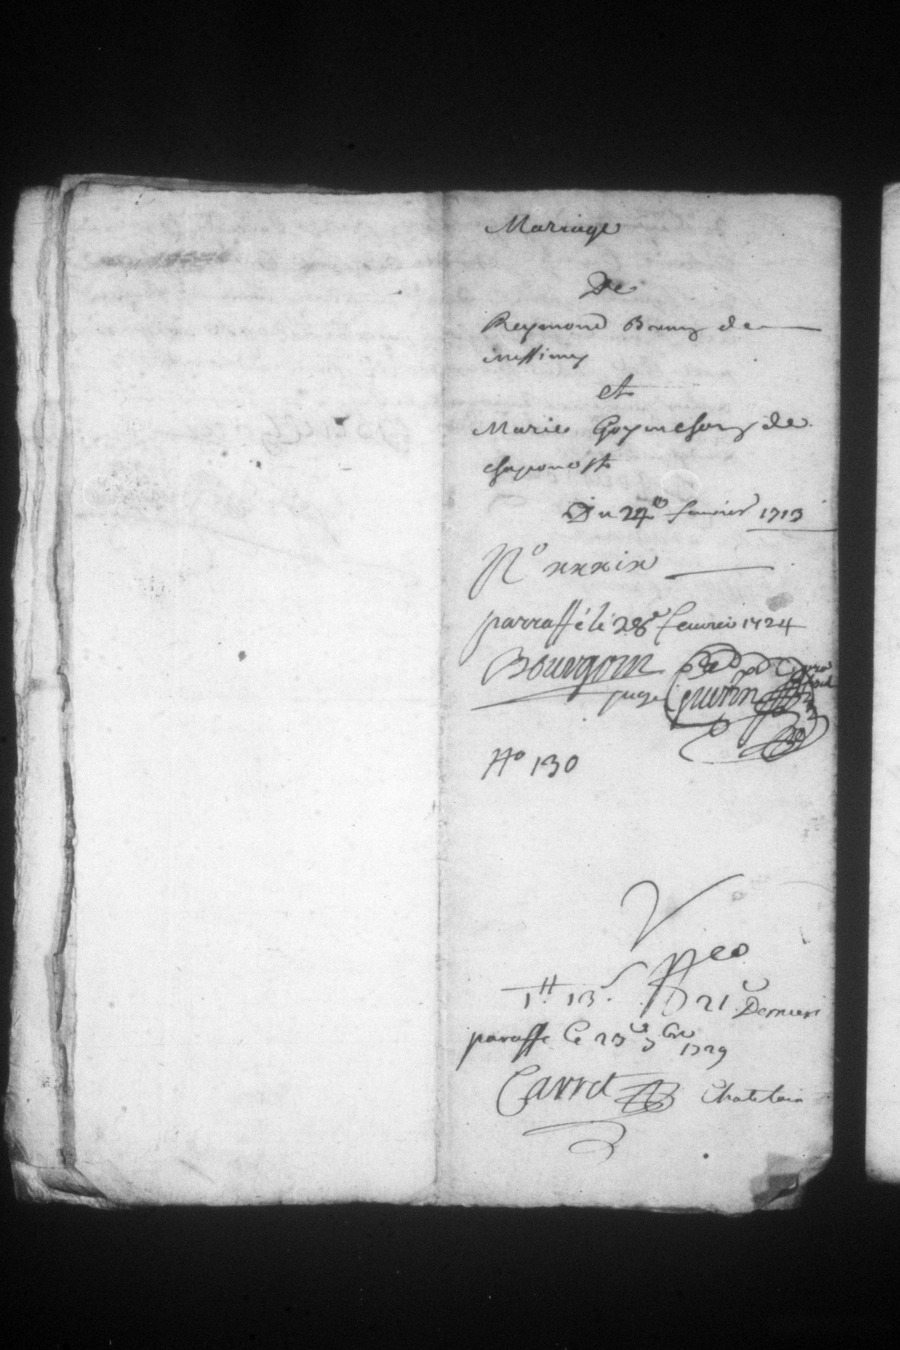 Mariage
De
Reymond Bruny de
messimy
et
Marie Goymeson de
chaponost
Du 24e feurier 1713
No xxxix
parraffé le 28e feurier 1724
Bourgoin
juge
No 130
1tt 13s 21e Dernieri
paraffe le 23e 1729
Carret Chatelain